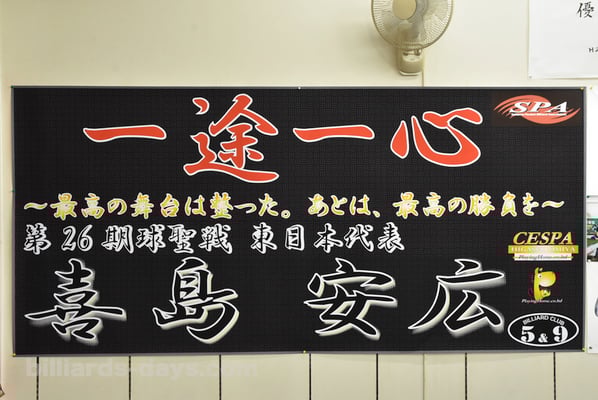 優
一途一心
SPA
～最高の舞台は整った。あとは、最高の勝負を～
第26期球聖戦 東日本代表
CESPA
喜島 安広
BILLIARD CLUB
5&9
billiards-days.com